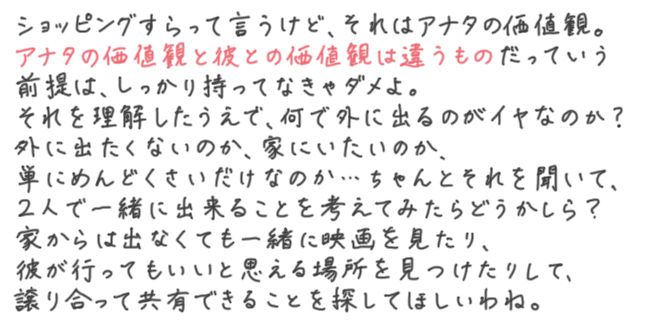 ショッピングすらって言うけど、それはアナタの価値観。
アナタの価値観と彼との価値観は違うものだっていう
前提は、しっかり持ってなきゃダメよ。
それを理解したうえで、何で外に出るのがイヤなのか？
外に出たくないのか、家にいたいのか、
単にめんどくさいだけなのか…ちゃんとそれを聞いて、
２人で一緒に出来ることを考えてみたらどうかしら？
家からは出なくても一緒に映画を見たり、
彼が行ってもいいと思える場所を見つけたりして、
譲り合って共有できることを探してほしいわね。